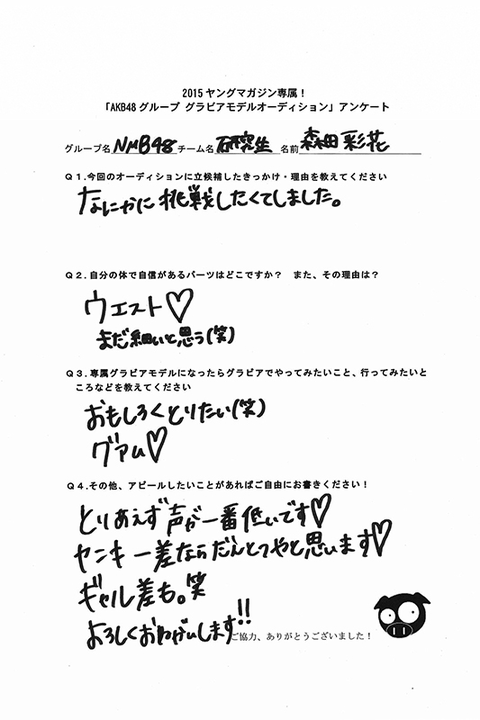 2015ヤングマガジン専属!
「AKB48グループ グラビアモデルオーディション」アンケート
グループ名 NMB48 チーム名 研究生 名前 森田彩花
Q1.今回のオーディションに立候補したきっかけ・理由を教えてください
なにかに挑戦したくてしました。
Q2.自分の体で自信があるパーツはどこですか? また、その理由は?
ウエスト♡
まだ細いと思う(笑)
Q3.専属グラビアモデルになったらグラビアでやってみたいこと、行ってみたいと
ころなどを教えてください
おもしろくとりたい(笑)
グアム♡
Q4.その他、アピールしたいことがあればご自由にお書きください!
とりあえず声が一番低いです♡
ヤンキー差ならだんとつやと思います♡
ギャル差も。笑
よろしくおねがいします!!
ご協力、ありがとうございました!